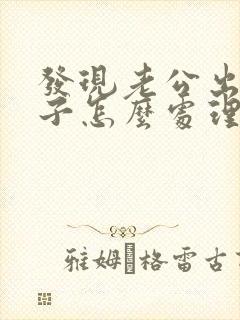 發現老公出
子怎麼處理
雅姆格雷古